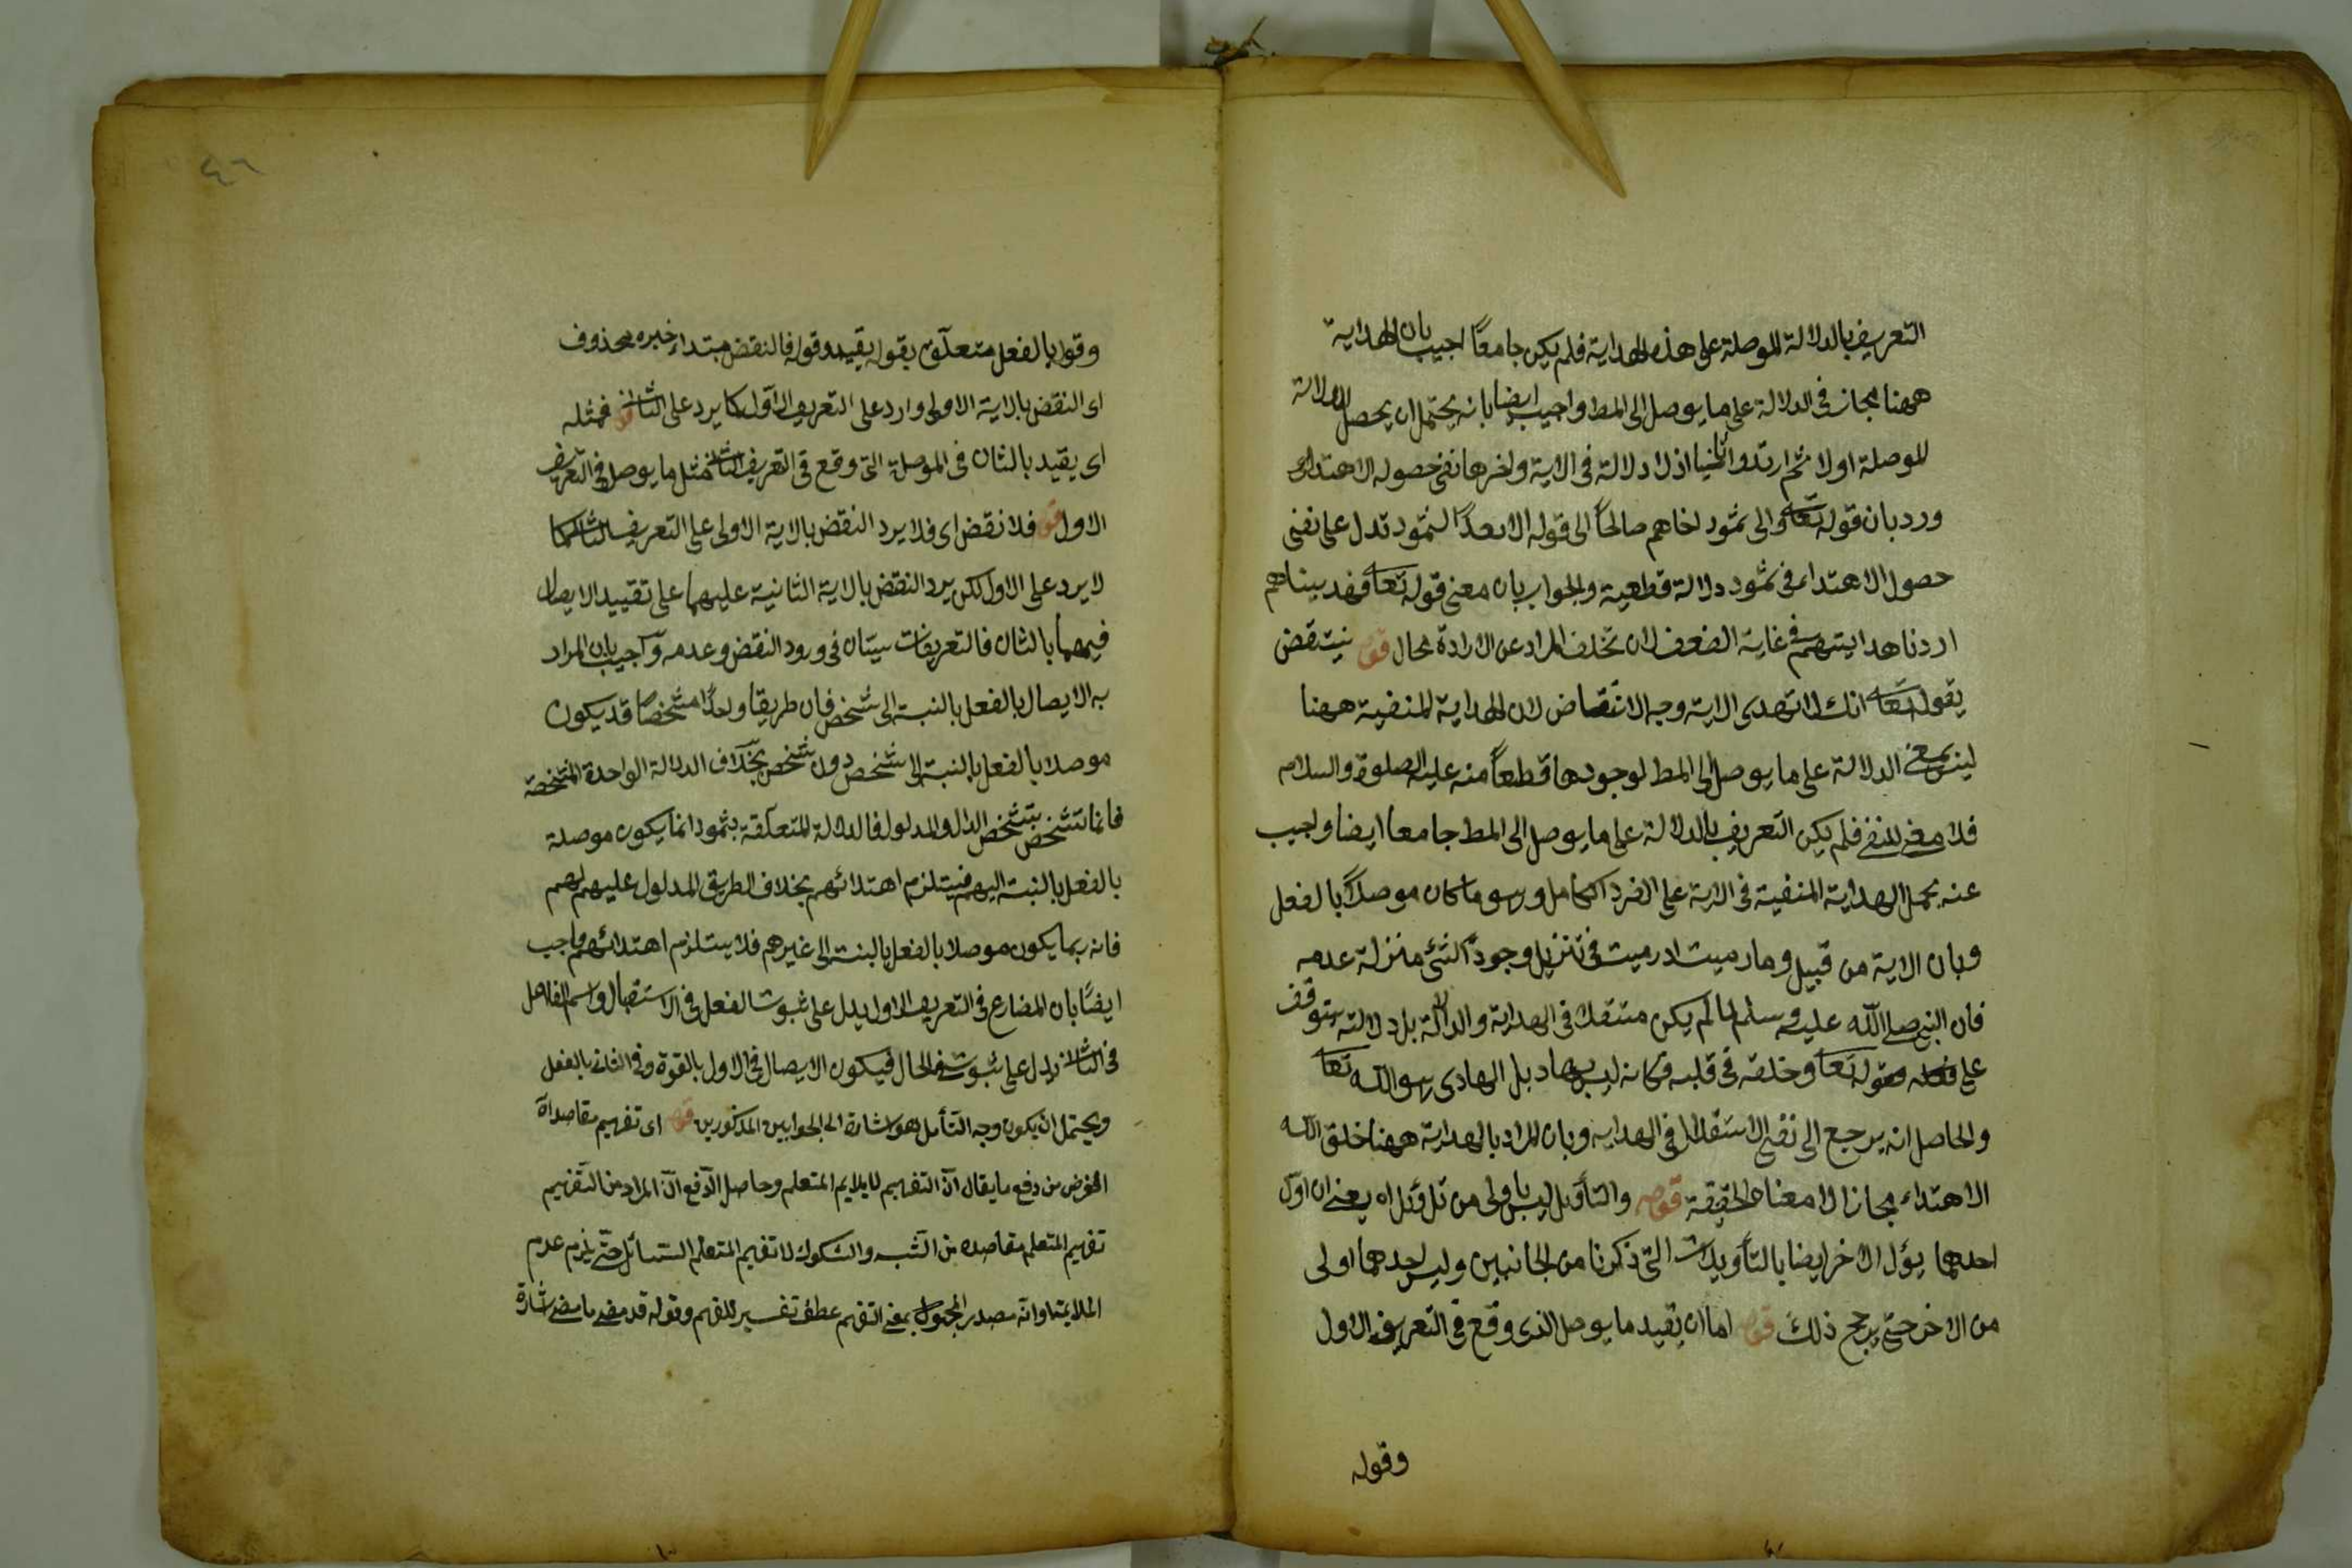 التعريف بالدلالة الموصلة على هذه الهداية فلم يكن جامعاً اجيب بان الهداية
ههنا مجاز في الدلالة على ما يوصل الى المط واجيب ايضا بانه يحتمل ان يحصل الدلالة
الموصلة اولا ثم ارتدوا ثانيا اذ لا دلالة في الاية واخرها نفي حصول الاهتداء
ورد بان قوله تعا والى ثمود اخاهم صالحاً الى قوله الا بعداً لثمود تدل على نفى
حصول الاهتداء في ثمود دلالة قطعية والجواب بان معنى قوله تعا فهديناهم
اردنا هدايتهم في غاية الضعف لان تخلف المراد عن الارادة محال قوله ينتقض
بقوله تعا انك لا تهدى الاية وجه الانتقاض لان الهداية المنفية ههنا
ليس بمعنى الدلالة على ما يوصل الى المط لوجودها قطعاً منه عليه الصلوة والسلام
فلا معنى للنفى فلم يكن التعريف بالدلالة على ما يوصل الى المط جامعا ايضا واجيب
عنه بحمل الهداية المنفية في الاية على الفرد الكامل وهو ما كان موصلاً بالفعل
وبان الاية من قبيل وما رميت اذ رميت في تنزيل وجود الشئ منزلة عدمه
فان النبى صلى الله عليه وسلم لما لم يكن مستقلا في الهداية والدلالة بل دلالته يتوقف
على قوله تعا وخلقه في قلبه فكانه ليس بهاد بل الهادى هو الله تعا
والحاصل انه يرجع الى نفى الاستقلال في الهداية وبان المراد بالهداية ههنا خلق الله
الاهتداء مجازا لا معناه الحقيقة قوله والتأويل ليس باولى من تأويل اه يعنى ان اول
احدهما يؤل الاخر ايضا بالتأويلات التى ذكرنا من الجانبين وليس احدهما اولى
من الاخر حتى يرجح ذلك قوله اما ان يقيد ما يوصل الذى وقع في التعريف الاول
وقوله
٤٦
وقوله بالفعل متعلق بقوله يقيد وقوله فالنقض مبتداء خبره محذوف
اى النقض بالاية الاولى وارد على التعريف الاول كما يرد على الثانى قوله فمثله
اى يقيد بالثان فى الموصلة التى وقع في التعريف الثانى مثل ما يوصل في التعريف
الاول قوله فلا نقض اى فلا يرد النقض بالاية الاولى على التعريف الثانى كما
لا يرد على الاول لكن يرد النقض بالاية الثانية عليهما على تقييد الايصال
فيهما بالثان فالتعريفات سيتان في ورود النقض وعدمه واجيب بان المراد
به الايصال بالفعل بالنسبة الى شخص فان طريقا واحدا مشخصا قد يكون
موصلا بالفعل بالنسبة الى شخص دون شخص بخلاف الدلالة الواحدة المشخصة
فانما تتشخص بتشخص الدال والمدلول فالدلالة المتعلقة بثمود انما يكون موصلة
بالفعل بالنسبة اليهم فيستلزم اهتدائهم بخلاف الطريق المدلول عليهم لهم
فانه ربما يكون موصلا بالفعل بالنسبة الى غيرهم فلا يستلزم اهتدائهم واجيب
ايضًا بان المضارع في التعريف الاول يدل على ثبوت الفعل في الاستقبال واسم الفاعل
في الثانى يدل على ثبوته في الحال فيكون الايصال في الاول بالقوة وفي الثانى بالفعل
ويحتمل ان يكون وجه التأمل هو اشارة الى الجوابين المذكورين قوله اى تفهيم مقاصد اه
الغرض من دفع ما يقال ان التفهيم لا يلايم المتعلم وحاصل الدفع ان المراد من التفهيم
تفهيم المتعلم مقاصده من الشبه والشكوك لا تفهيم المتعلم المسائل حتى يلزم عدم
الملايمة او انه مصدر المجهول بمعنى التفهم عطف تفسير للفهم وقوله قد مضى ما مضى اشارة